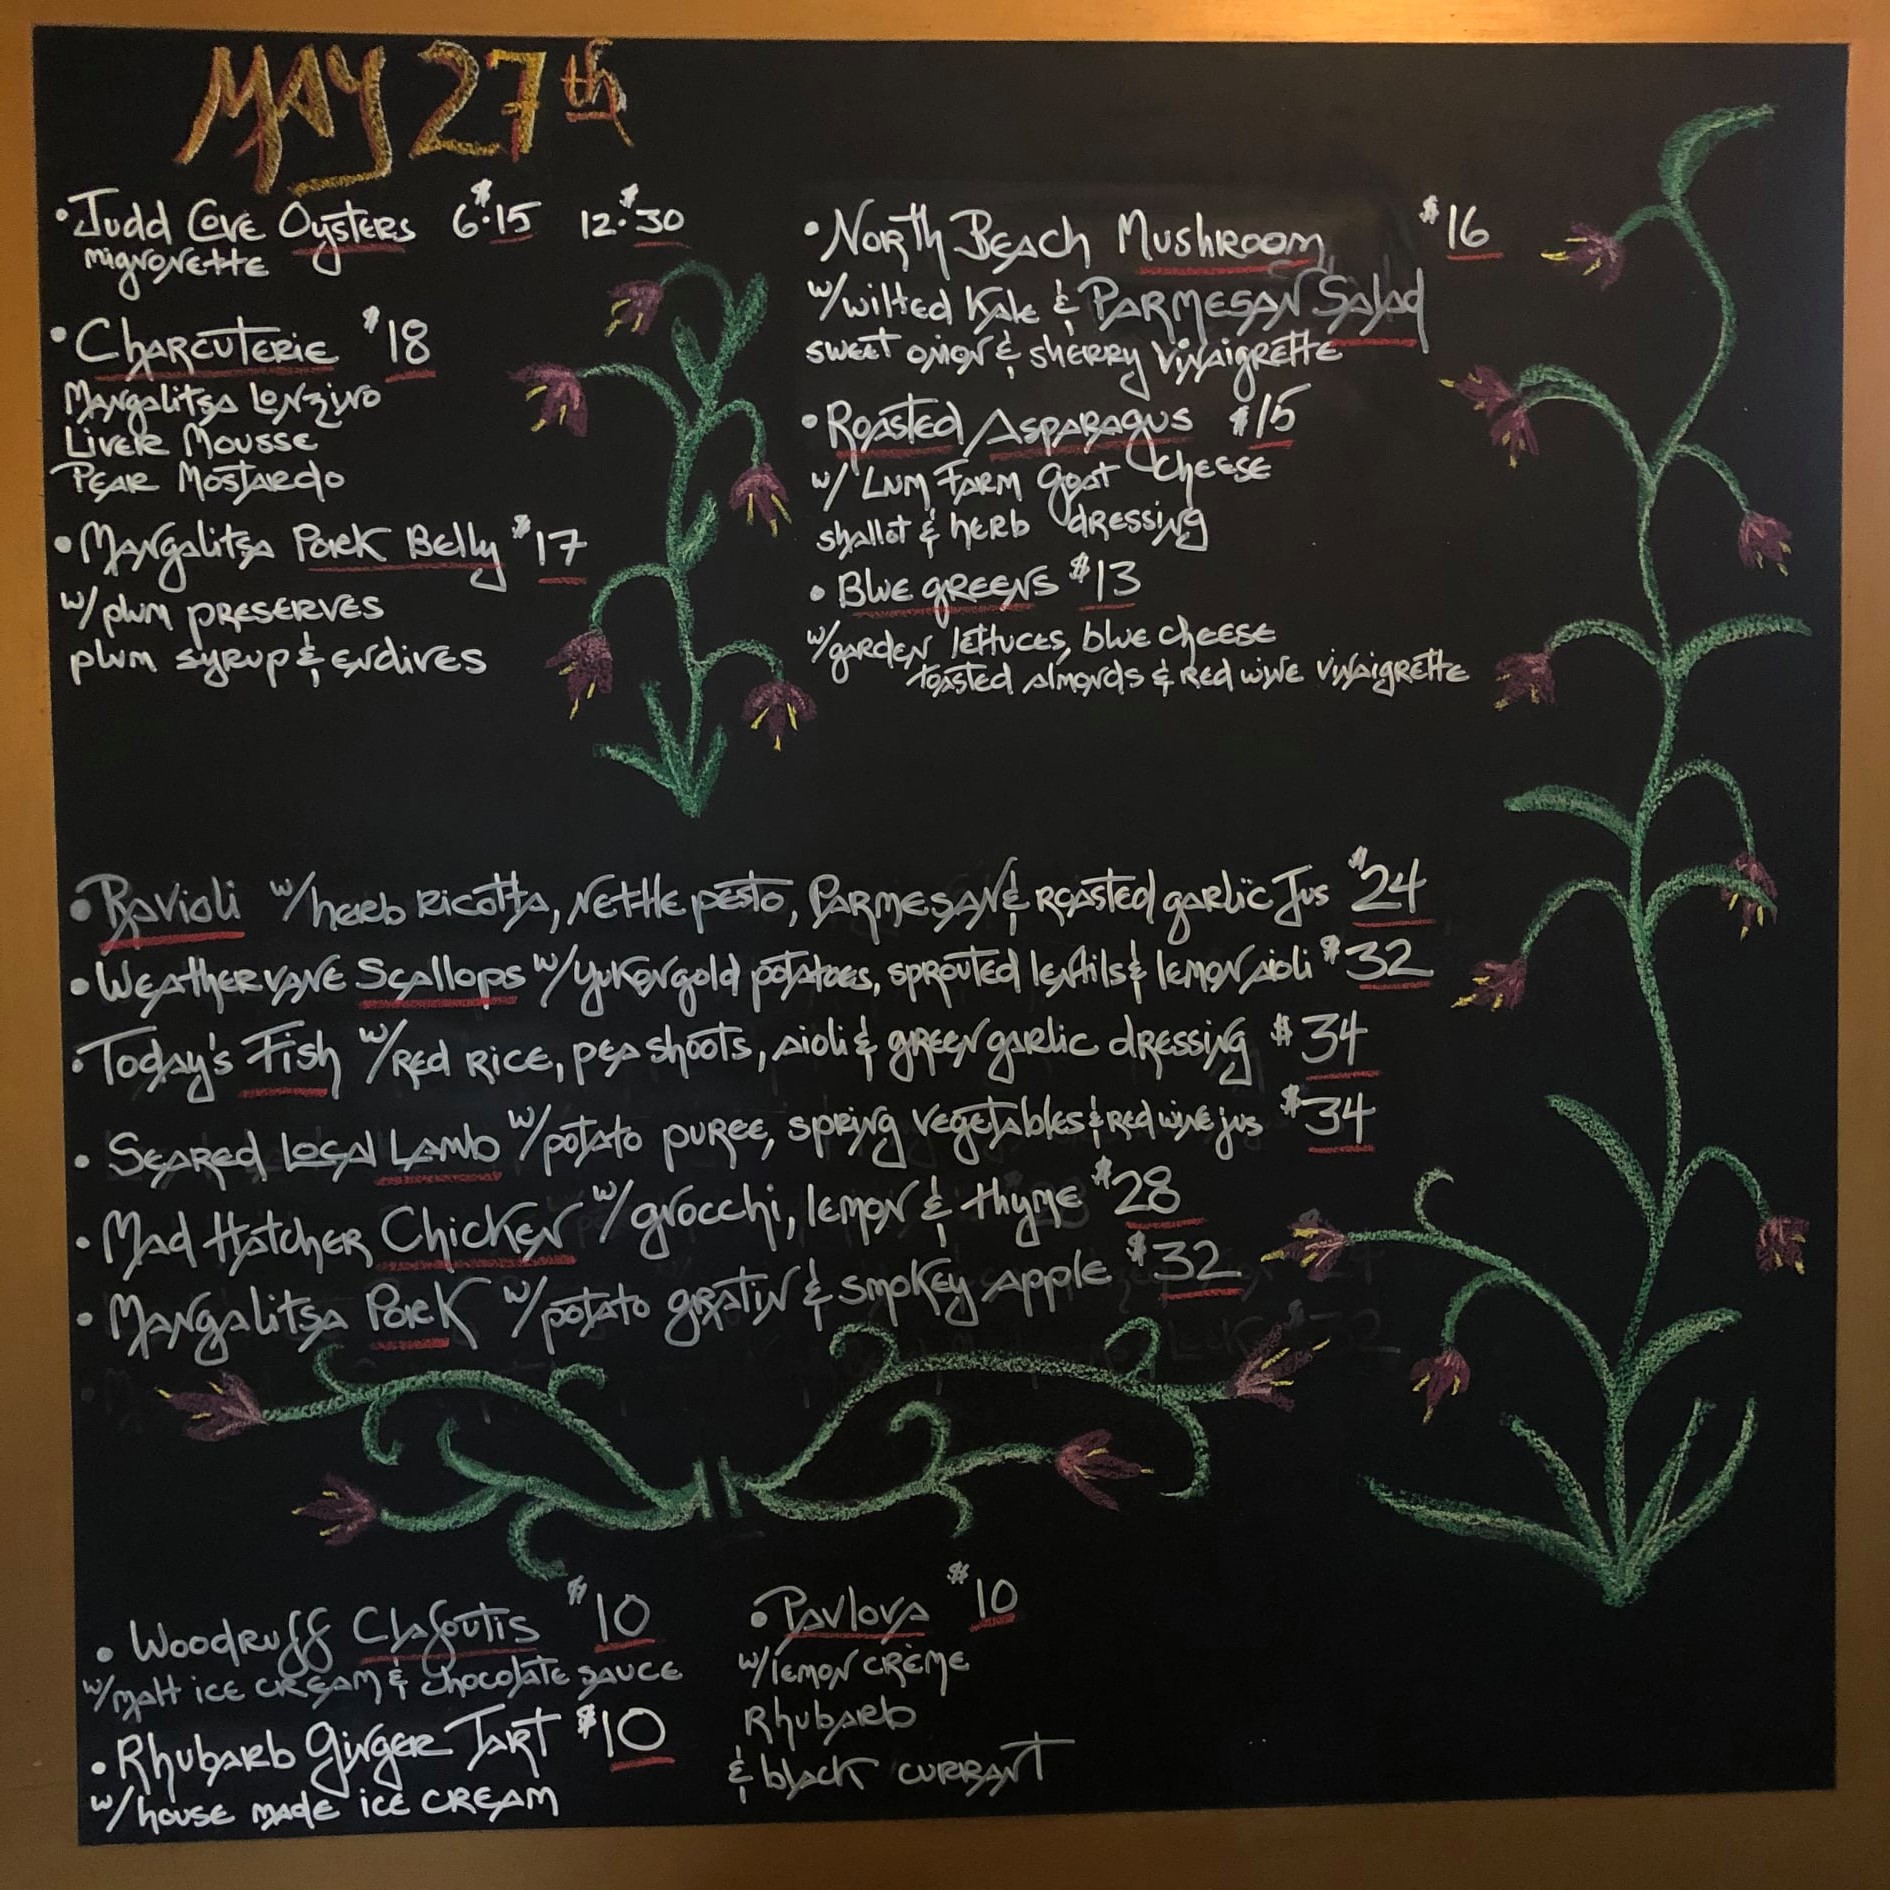 MAY 27th
• Judd Cove Oysters 6·$15 12·$30
mignonette
• Charcuterie $18
Mangalitsa Lonzino
Liver Mousse
Pear Mostardo
• Mangalitsa Pork Belly $17
w/ plum preserves
plum syrup & endives
• North Beach Mushroom $16
w/wilted Kale & Parmesan Salad
sweet onion & sherry vinaigrette
• Roasted Asparagus $15
w/ Lum Farm goat cheese
shallot & herb dressing
• Blue greens $13
w/garden lettuces, blue cheese
toasted almonds & red wine vinaigrette
• Ravioli w/herb ricotta, nettle pesto, Parmesan & roasted garlic Jus $24
• Weathervane Scallops w/yukon gold potatoes, sprouted lentils & lemon aioli $32
• Today's Fish w/red rice, pea shoots, aioli & green garlic dressing $34
• Seared Local Lamb w/potato puree, spring vegetables & red wine jus $34
• Mad Hatcher Chicken w/gnocchi, lemon & thyme $28
• Mangalitsa Pork w/potato gratin & smokey apple $32
• Woodruff Clafoutis $10
w/malt ice cream & chocolate sauce
• Rhubarb Ginger Tart $10
w/house made ice cream
• Pavlova $10
w/lemon crème
Rhubarb
& black currant